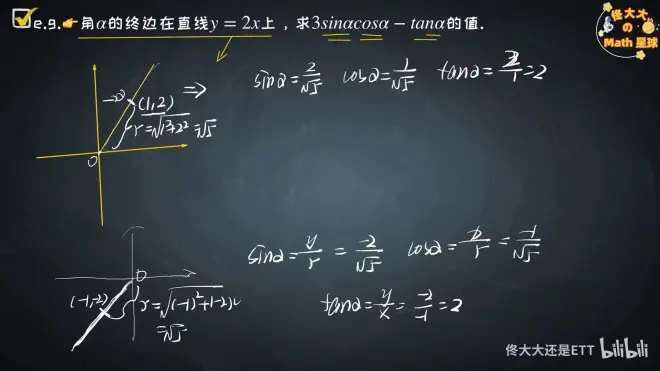 e.g.👉角α的终边在直线y = 2x上，求3sinαcosα − tanα的值.
佟大大
の
Math 星球
sinα = 2/√5 cosα = 1/√5 tanα = 2/1 = 2
(1,2)
r = √1²+2² = √5
⇒
O
sinα = y/r = -2/√5 cosα = x/r = -1/√5
O
(-1,-2)
r = √(-1)²+(-2)²
= √5
tanα = y/x = -2/-1 = 2
佟大大还是ETT bilibili